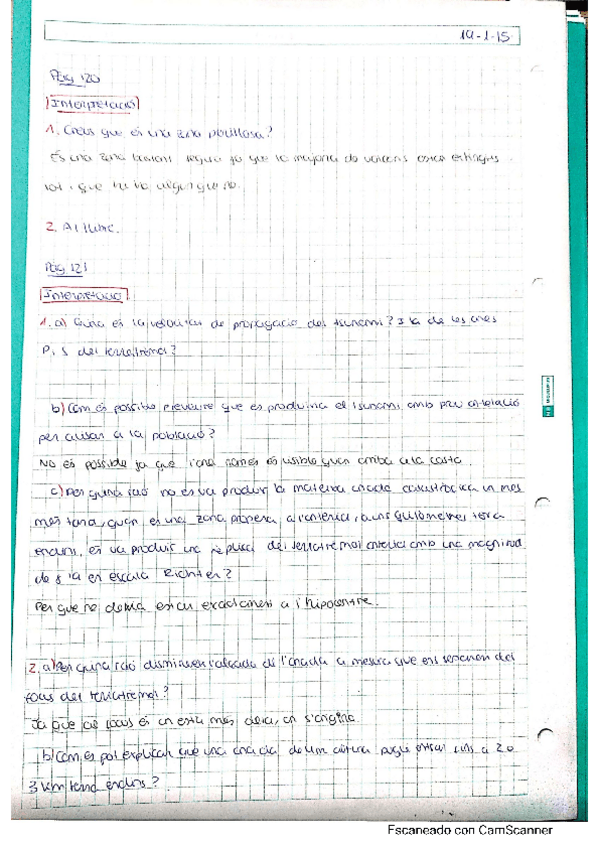 14-1-15
Pàg 120
Interpretació
1. Creus que és una zona perillosa?
És una zona bastant segura ja que la majoria de volcans estan extingits
tot i que hi ha algun
2. A l'lliure.
Pàg 121
Interpretació
1. a) Quina és la velocitat de propagació del tsunami? I la de les ones
P i S del terratrèmol?
b) Com és possible preveure que es produiria el tsunami amb prou antelació
per avisar a la població?
No és possible ja que l'ona només és visible quan arriba a la costa.
c) Per quina raó no es va produir la mateixa onada catastròfica un mes
més tard, quan es una zona propera a l'anterior, a uns quilòmetres terra
endins, es va produir una rèplica del terratrèmol anterior amb una magnitud
de 8 a l'escala Richter?
Per que no devia estar exactament a l'hipocentre.
2. a) Per quina raó disminueix l'alçada de l'onada a mesura que ens separem del
focus del terratrèmol?
Ja que el focus és on està més a on s'origina.
b) Com es pot explicar que una onada de 10m d'altura pugui entrar fins a 2 o
3 km terra endins?
Escaneado con CamScanner